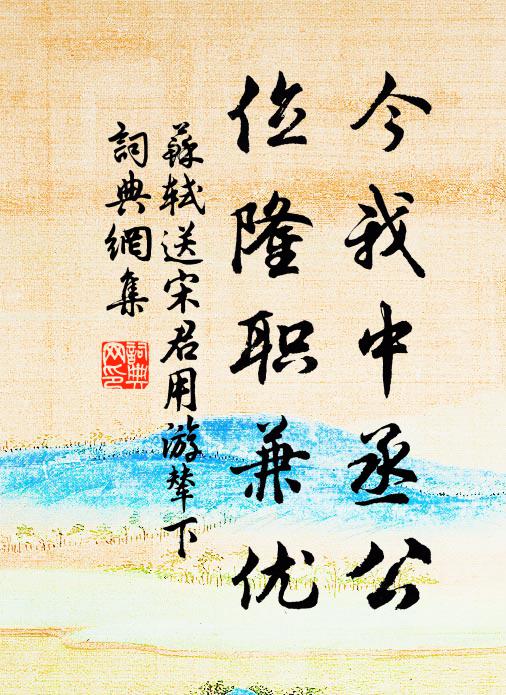 今我中丞公
位隆职兼优
蘇轼送宋君用游辇下
詞典網集
詞典网印